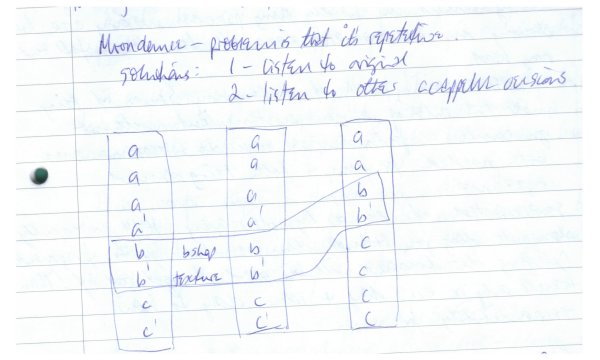 Moondance - problem is that it's repetitive.
solutions: 1 - listen to original
2 - listen to other accappella versions
a a a
a a a
a a b
a' a' b'
b bshop b c
b' texture b' c
c c c
c' c' c